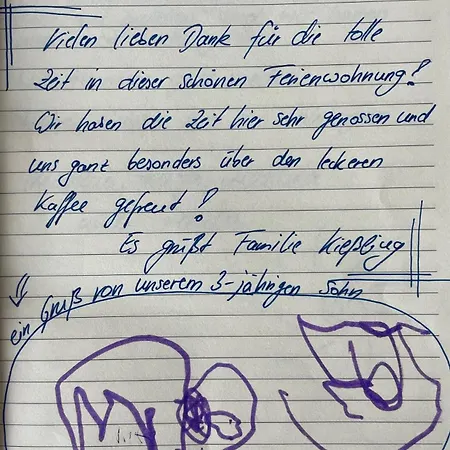 Vielen lieben Dank für die tolle
Zeit in dieser schönen Ferienwohnung!
Wir haben die Zeit hier sehr genossen und
uns ganz besonders über den leckeren
Kaffee gefreut!
Es grüßt Familie Kießling
ein Gruß von unserem 3-jährigen Sohn